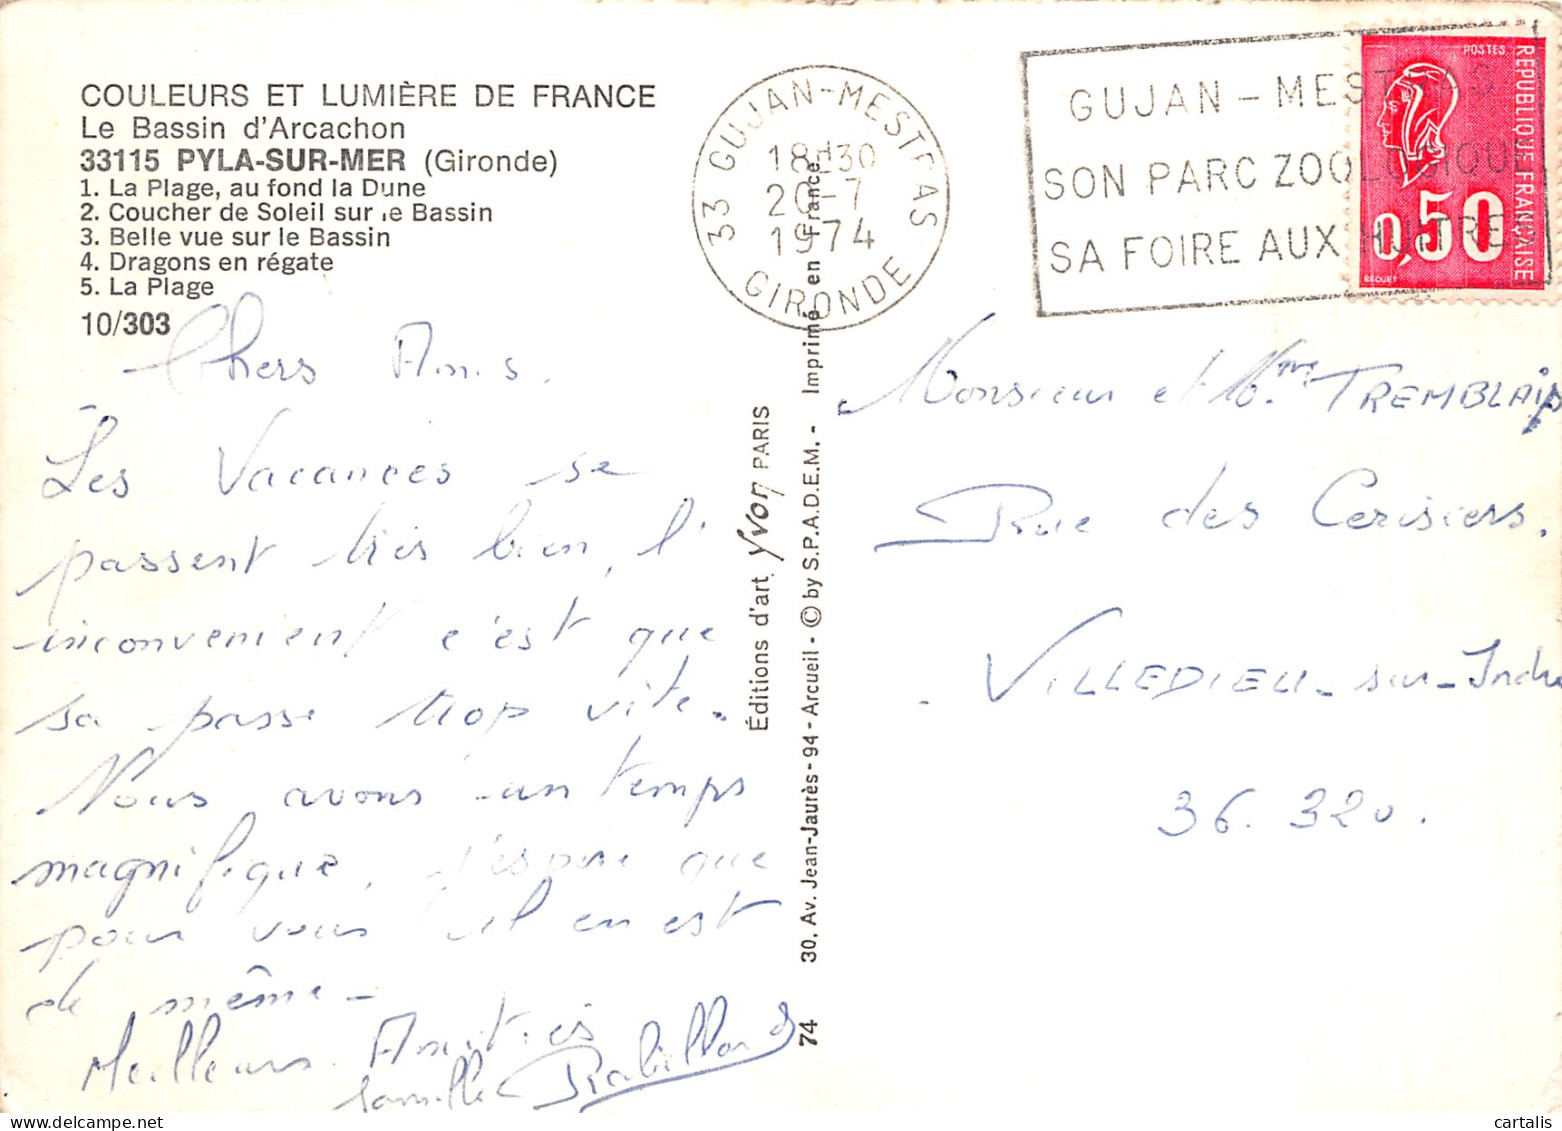 COULEURS ET LUMIÈRE DE FRANCE
Le Bassin d'Arcachon
33115 PYLA-SUR-MER (Gironde)
1. La Plage, au fond la Dune
2. Coucher de Soleil sur le Bassin
3. Belle vue sur le Bassin
4. Dragons en régate
5. La Plage
10/303
Chers Amis.
Les Vacances se
passent très bien, l'
inconvenient c'est que
sa passe trop vite.
Nous avons un temps
magnifique, j'espère que
pour vous il en est
de même -
Meilleurs Amitiés
famille Rabillard
Éditions d'art Yvon PARIS
30, Av. Jean-Jaurès - 94 - Arcueil - © by S.P.A.D.E.M. - Imprimé en France
74
33 GUJAN-MESTRAS
18H30
20-7
1974
GIRONDE
GUJAN - MESTRAS
SON PARC ZOOLOGIQUE
SA FOIRE AUX HUITRES
POSTES
REPUBLIQUE FRANÇAISE
0,50
BEQUET
Monsieur et Mme TREMBLAIS
Rue des Cerisiers.
VILLEDIEU - sur - Indre
36. 320.
cartalis